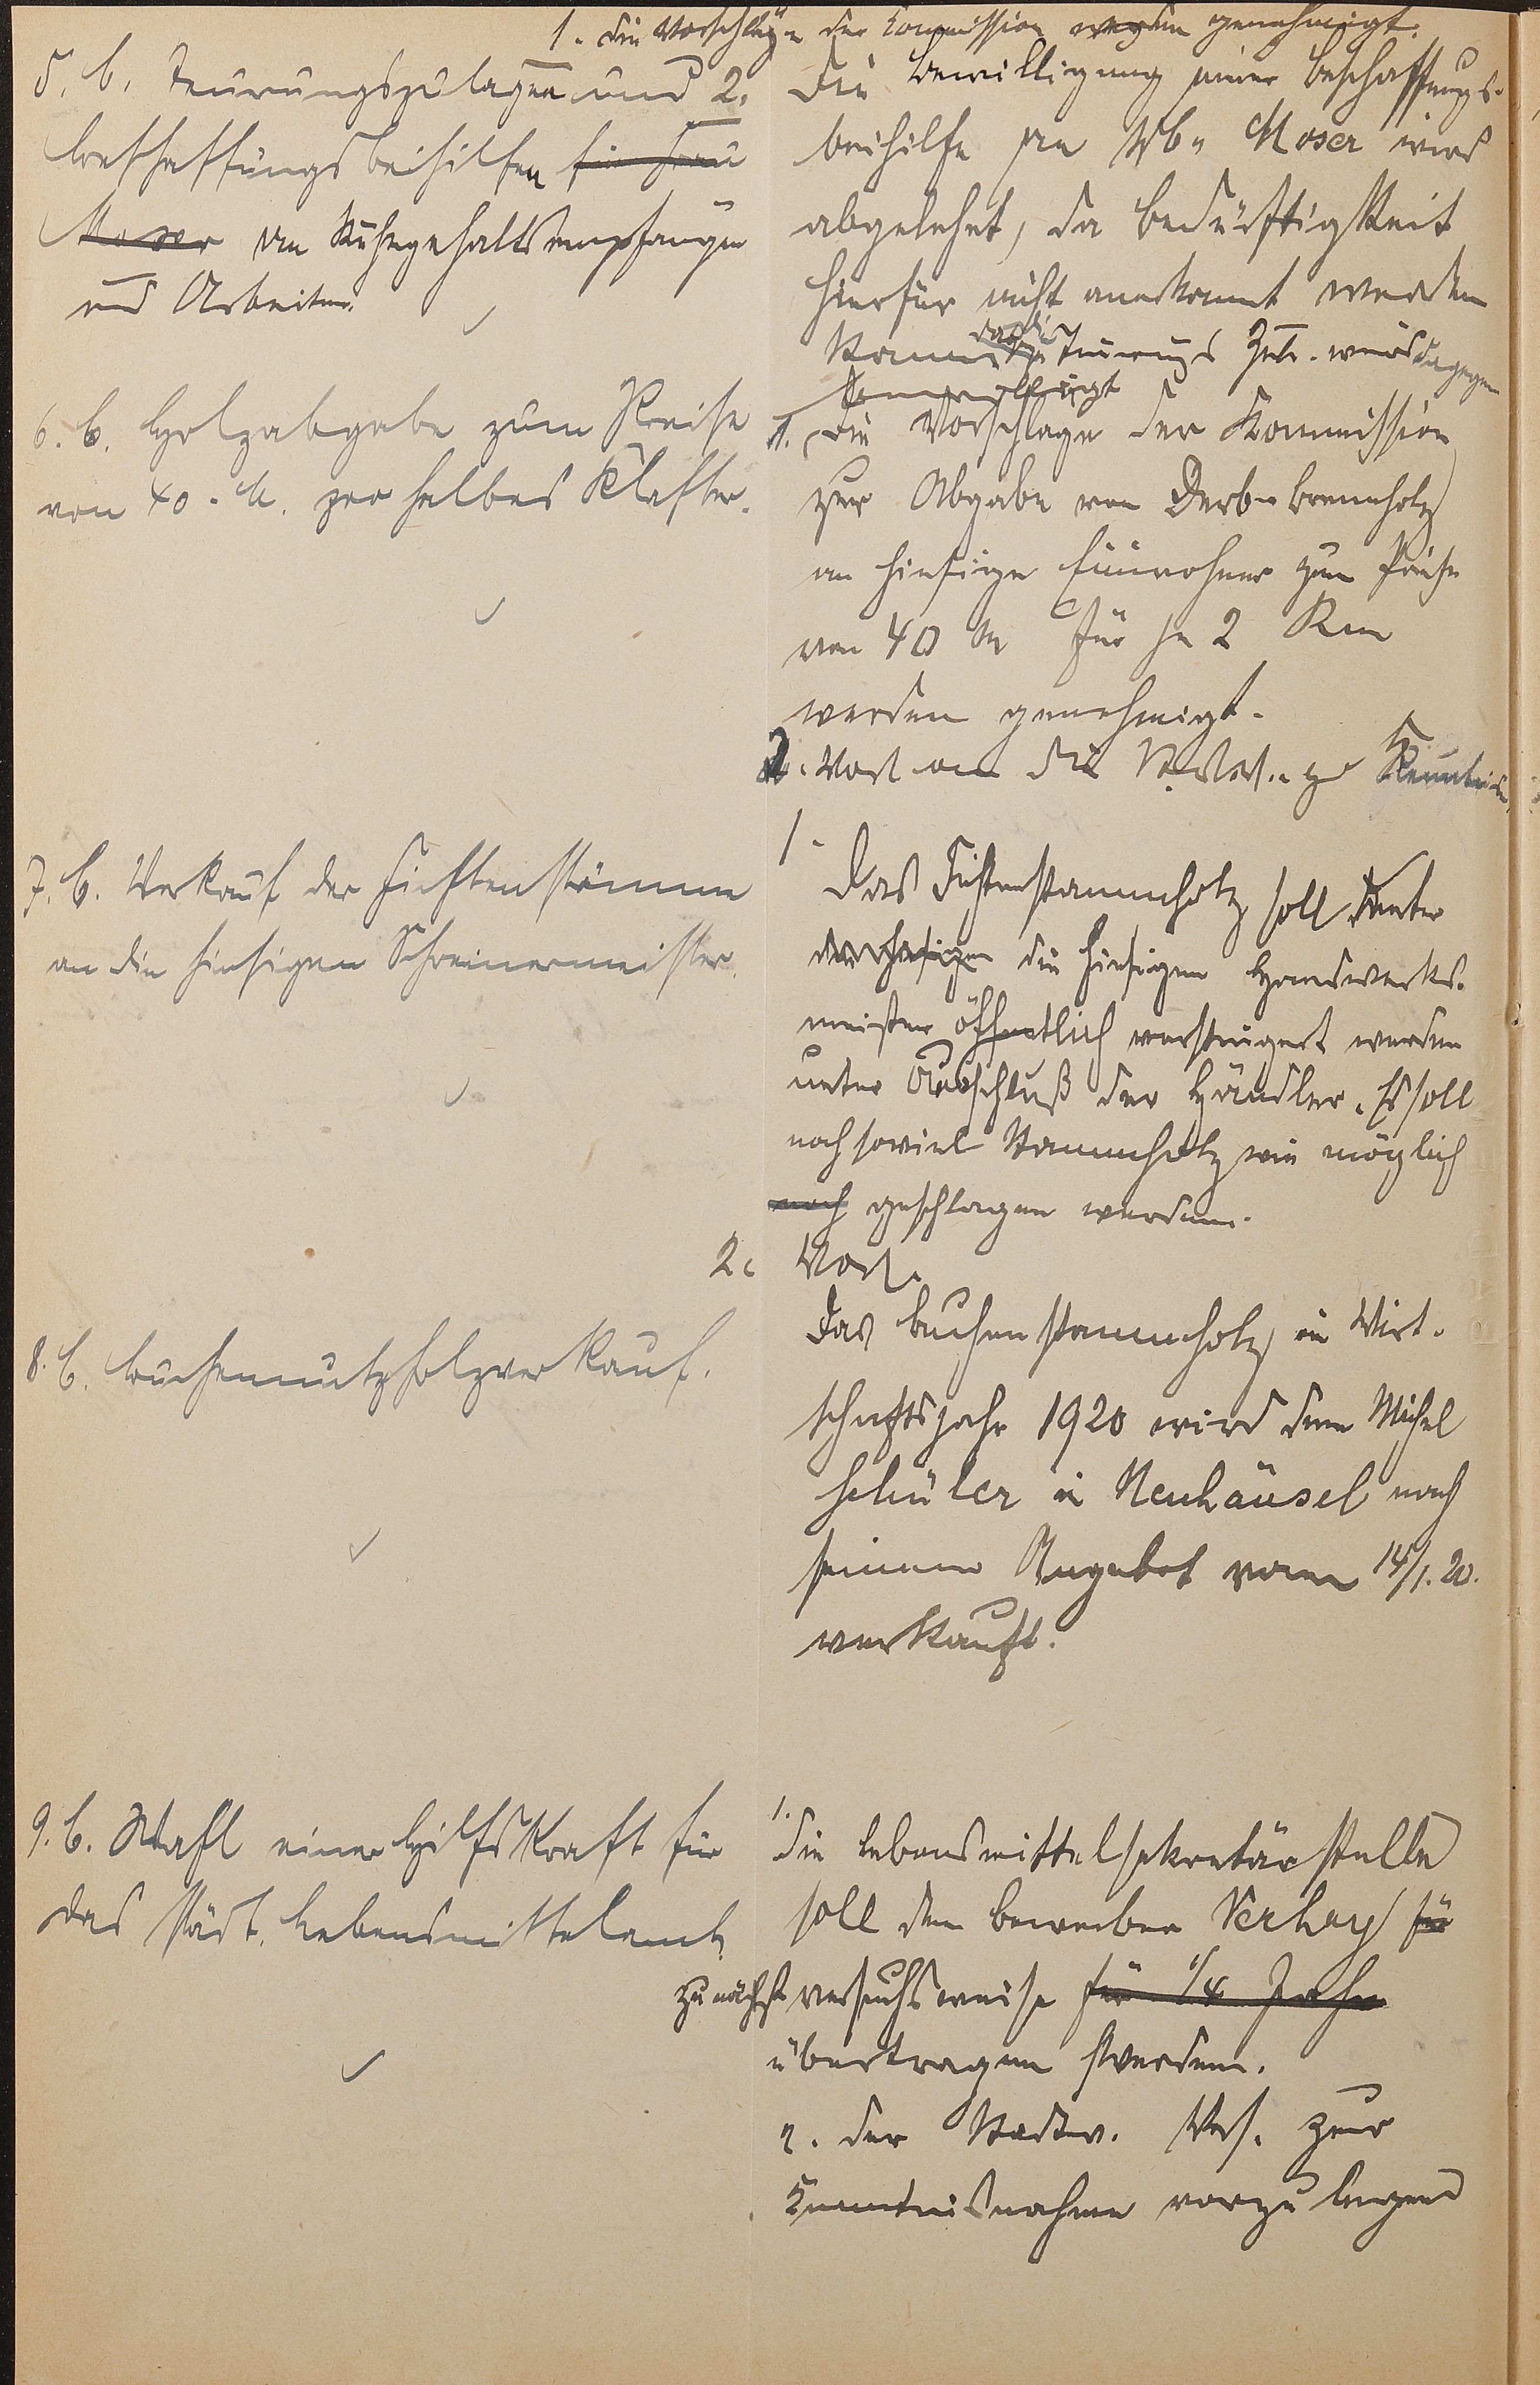 1. Die Vorschläge der Kommission werden genehmigt.
5. b. Teuerungszulagen und
Beschaffungsbeihilfen für Frau
Moser an Ruhegehaltsempfänger
und Arbeiter.
2. Die Bewilligung einer Beschaffungs-
beihilfe an Moser wird
abgelehnt, da Bedürftigkeit
hierfür nicht anerkannt werden
kann Teuerungs Zul. wird dagegen
bewilligt
6. b. Holzabgabe zum Preise
von 40.- M. pro halbes Klafter.
1. Die Vorschläge der Kommission
zur Abgabe von Derb-brennholz
an hiesige Einwohner zum Preise
von 40 M für je 2 Rm
werden genehmigt.
2. Vorl. an die zur Kenntnis
7. b. Verkauf der Fichtenstämme
an die hiesigen Schreinermeister.
1.
Das Fichtenstammholz soll unter
die hiesigen Handwerks-
meister öffentlich versteigert werden
unter Ausschluß der Händler. Es soll
noch soviel Stammholz wie möglich
noch geschlagen werden.
2. Vorl.
8. b. Buchennutzholzverkauf.
Das Buchenstammholz in Wirt-
schaftsjahr 1920 wird dem Michel
Schüler in Neuhäusel nach
seinem Angebot vom 14/1. 20.
verkauft.
9. b. Wahl einer Hilfskraft für
das städt. Lebensmittelamt
1.
Die Lebensmittelsekretärstelle
soll dem Bewerber für
zunächst versuchsweise für 1/4 Jahr
übertragen werden.
2. der Stadtv. Vers. zur
Kenntnisnahme vorzulegen